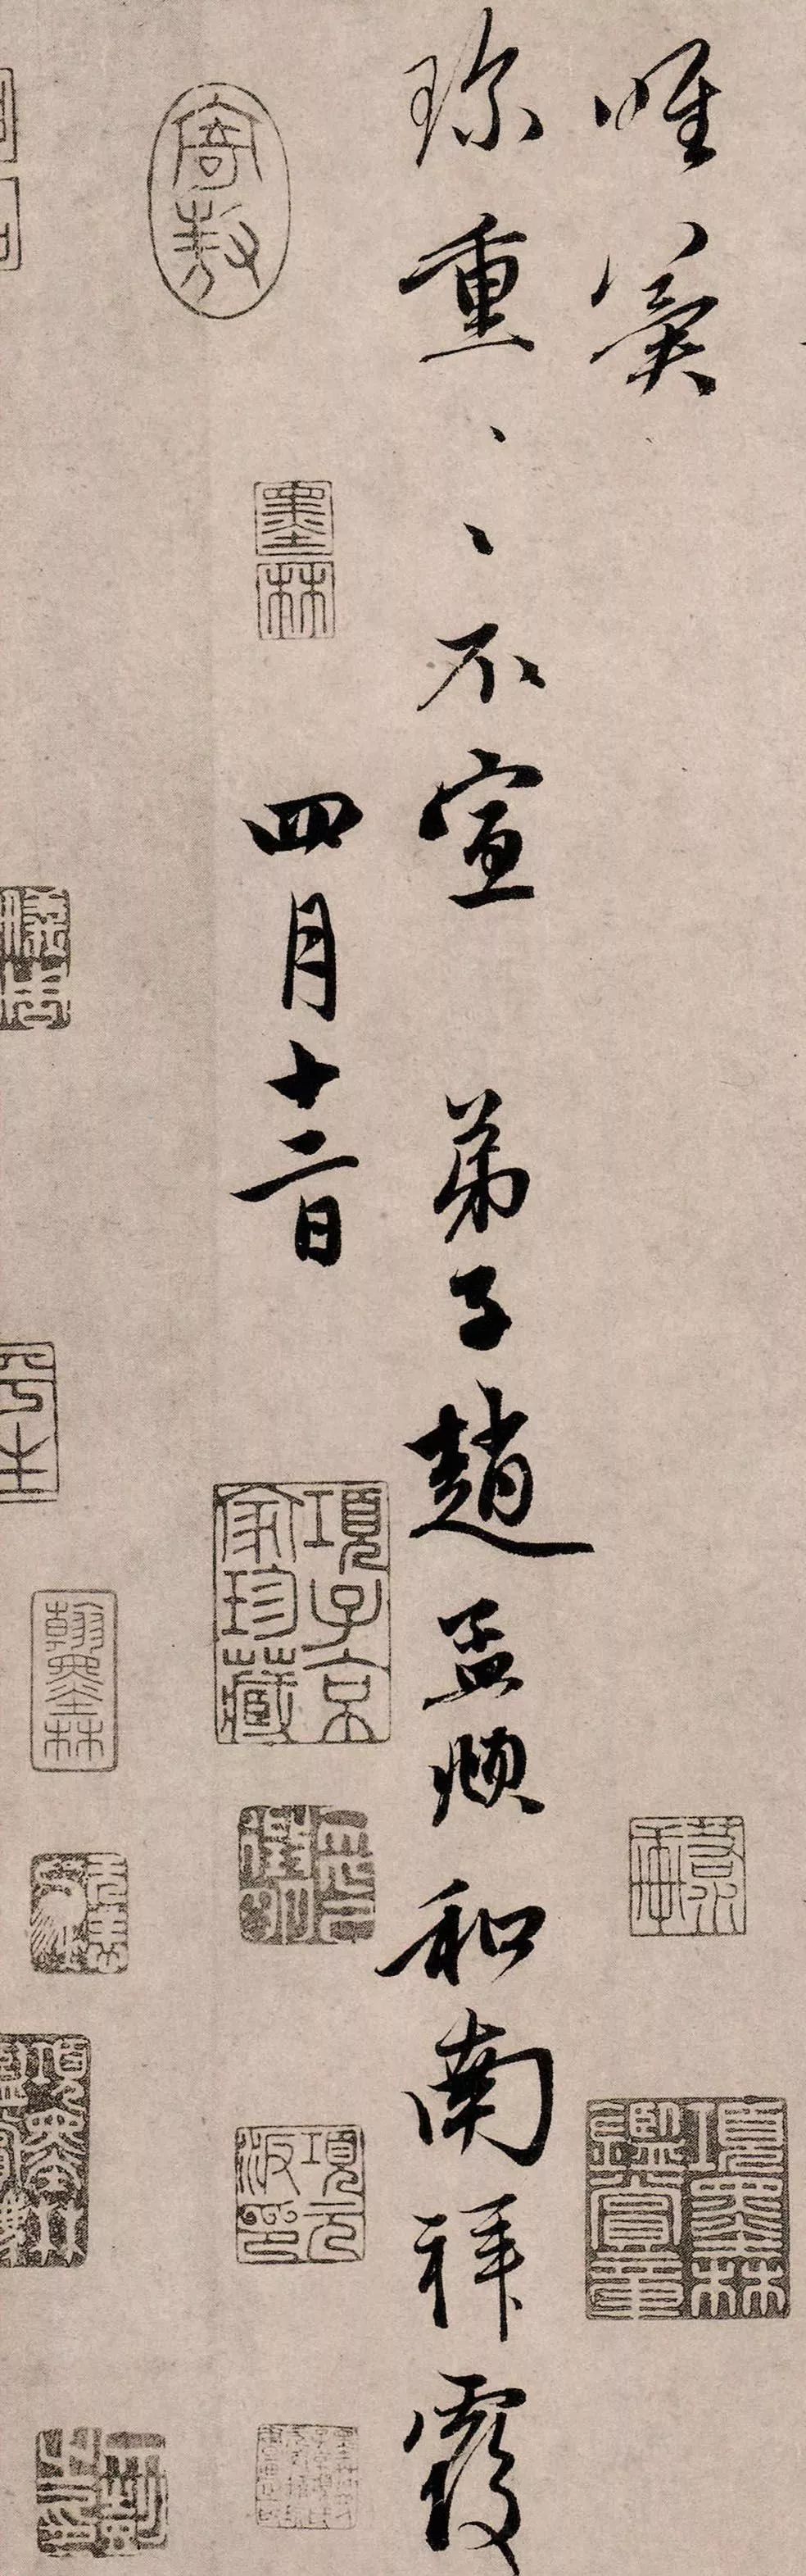 唯冀
項墨林鑑賞章
珍重、、不宣 弟子趙孟頫和南拜覆
四月十二日
墨林
項子京家珍藏
項元汴印
寄敖
翰墨林